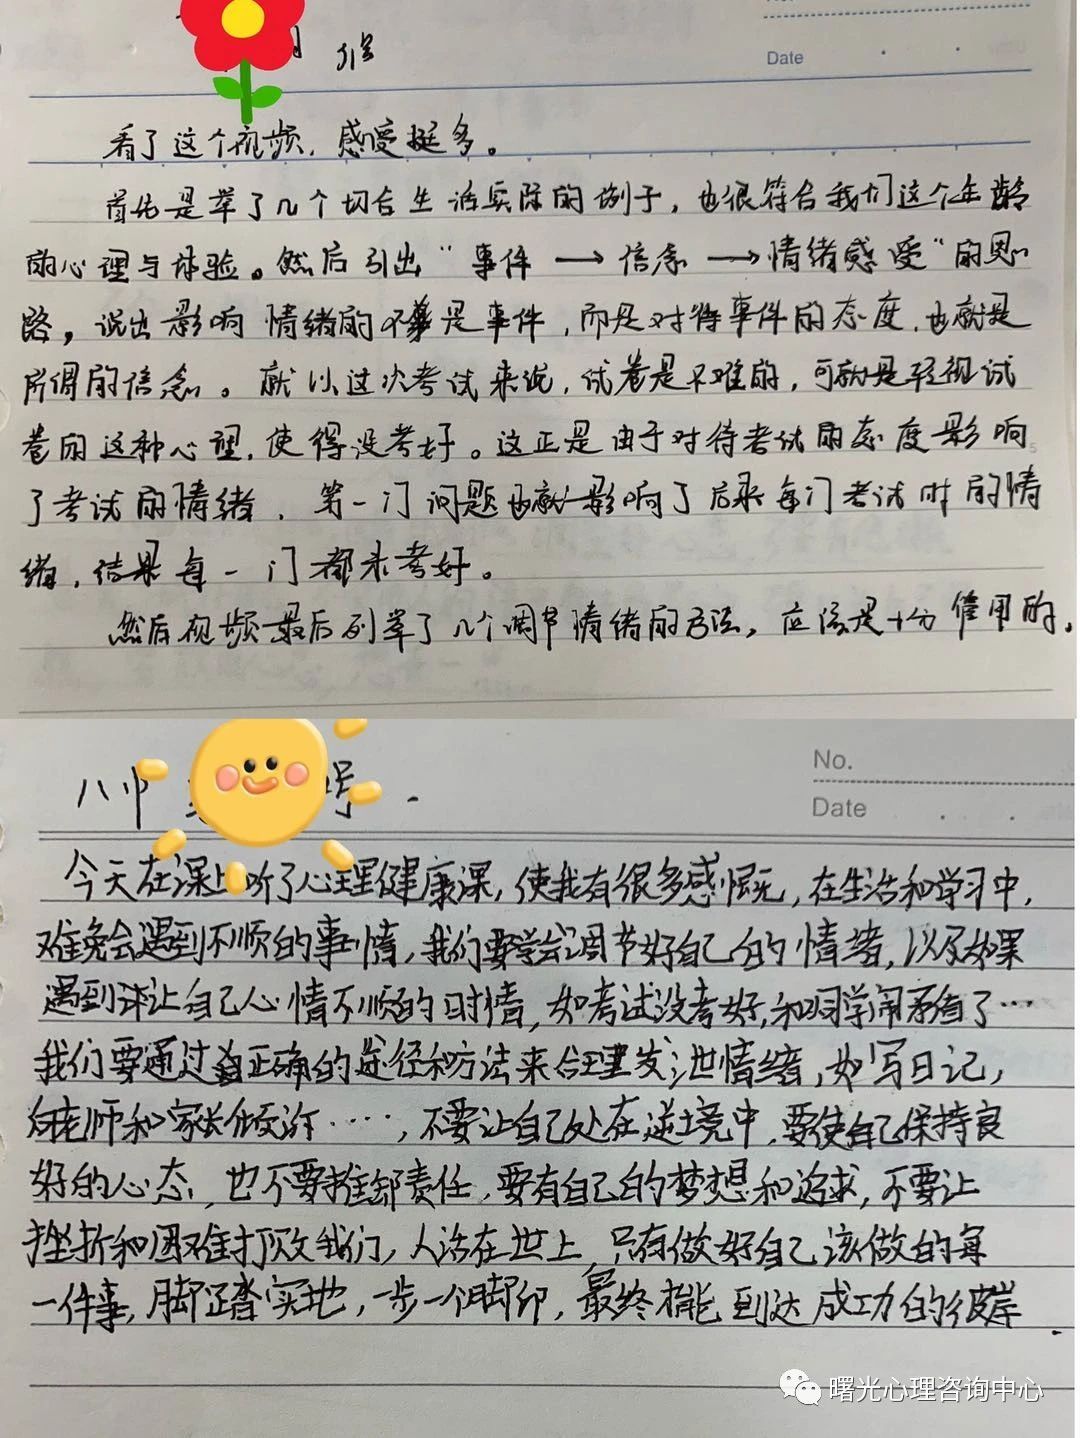 Date
看了这个视频，感受挺多。
首先是举了几个切合生活实际的例子，也很符合我们这个年龄
的心理与体验。然后引出“事件→信念→情绪感受”的思
路，说出影响情绪的不是事件，而是对待事件的态度，也就是
所谓的信念。就以这次考试来说，试卷是不难的，可就是轻视试
卷的这种心理，使得没考好。这正是由于对待考试的态度影响
了考试的情绪，第一门问题也就影响了后来每门考试时的情
绪，结果每一门都未考好。
然后视频最后列举了几个调节情绪的方法，应该是十分管用的。
No.
八 号
Date
今天在课上听了心理健康课，使我有很多感慨，在生活和学习中，
难免会遇到不顺的事情，我们要学会调节好自己的情绪，以及如果
遇到让自己心情不顺的时情，如考试没考好，和同学闹矛盾了…
我们要通过正确的途径和方法来合理发泄情绪，如写日记，
向老师和家长倾诉……，不要让自己处在逆境中，要使自己保持良
好的心态，也不要推卸责任，要有自己的梦想和追求，不要让
挫折和困难打败我们，人活在世上，只有做好自己该做的每
一件事，脚踏实地，一步一个脚印，最终才能到达成功的彼岸.
曙光心理咨询中心